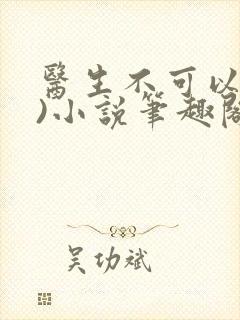 醫生不可以
)小說筆趣閣
吳功斌